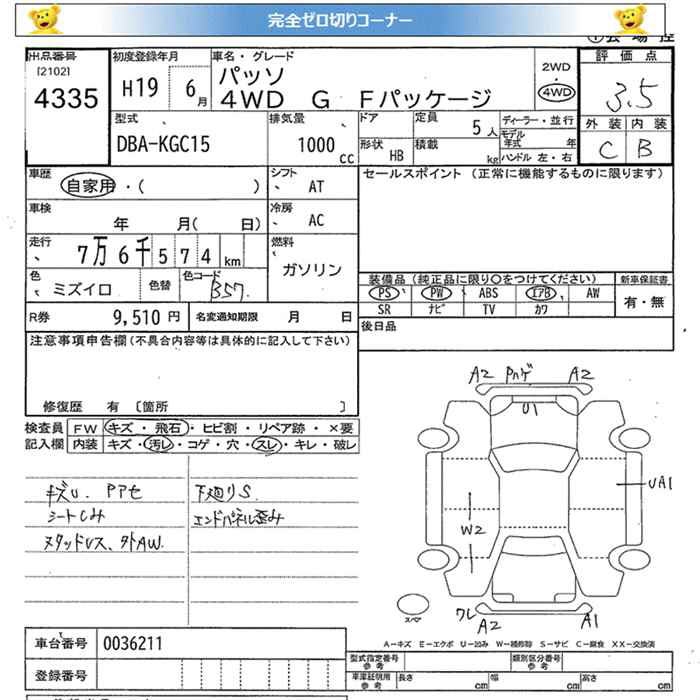 完全ゼロ切りコーナー
出品番号 初度登録年月 車名・グレード 評価点
[2102]
4335 H19 6月 パッソ
4WD G Fパッケージ 2WD 4WD 3.5
型式 排気量 ドア 定員 5人 ディーラー・並行 外装 内装
DBA-KGC15 1000cc 形状 HB 積載 kg モデル年式 年 ハンドル 左・右 C B
車歴 自家用・( ) シフト AT セールスポイント (正常に機能するものに限ります)
車検 年 月( 日) 冷房 AC
走行 7万6千574km 燃料 ガソリン
色 ミズイロ 色替 色コード B57.
装備品(純正品に限り○をつけてください) 新車保証書
PS PW ABS エアB AW 有・無
SR ナビ TV カワ
R券 9,510円 名変通知期限 月 日 後日品
注意事項申告欄(不具合内容等は具体的に記入して下さい)
修復歴 有 〔箇所 〕
検査員 FW キズ・飛石・ヒビ割・リペア跡・×要
記入欄 内装 キズ・汚レ・コゲ・穴・スレ・キレ・破レ
キズU. Pアセ 下廻りS.
シートしみ エンドパネル歪み
スタッドレス、外AW.
A2 Pハゲ A2
U1
UA1
W2
スペア
ワレ
A2 A1
A-キズ E-エクボ U-凹み W-補修跡 S-サビ C-腐食 XX-交換済
車台番号 0036211
型式指定番号 参考 類別区分番号 参考
登録番号 車庫証明用 参考 長さ cm 幅 cm 高さ cm